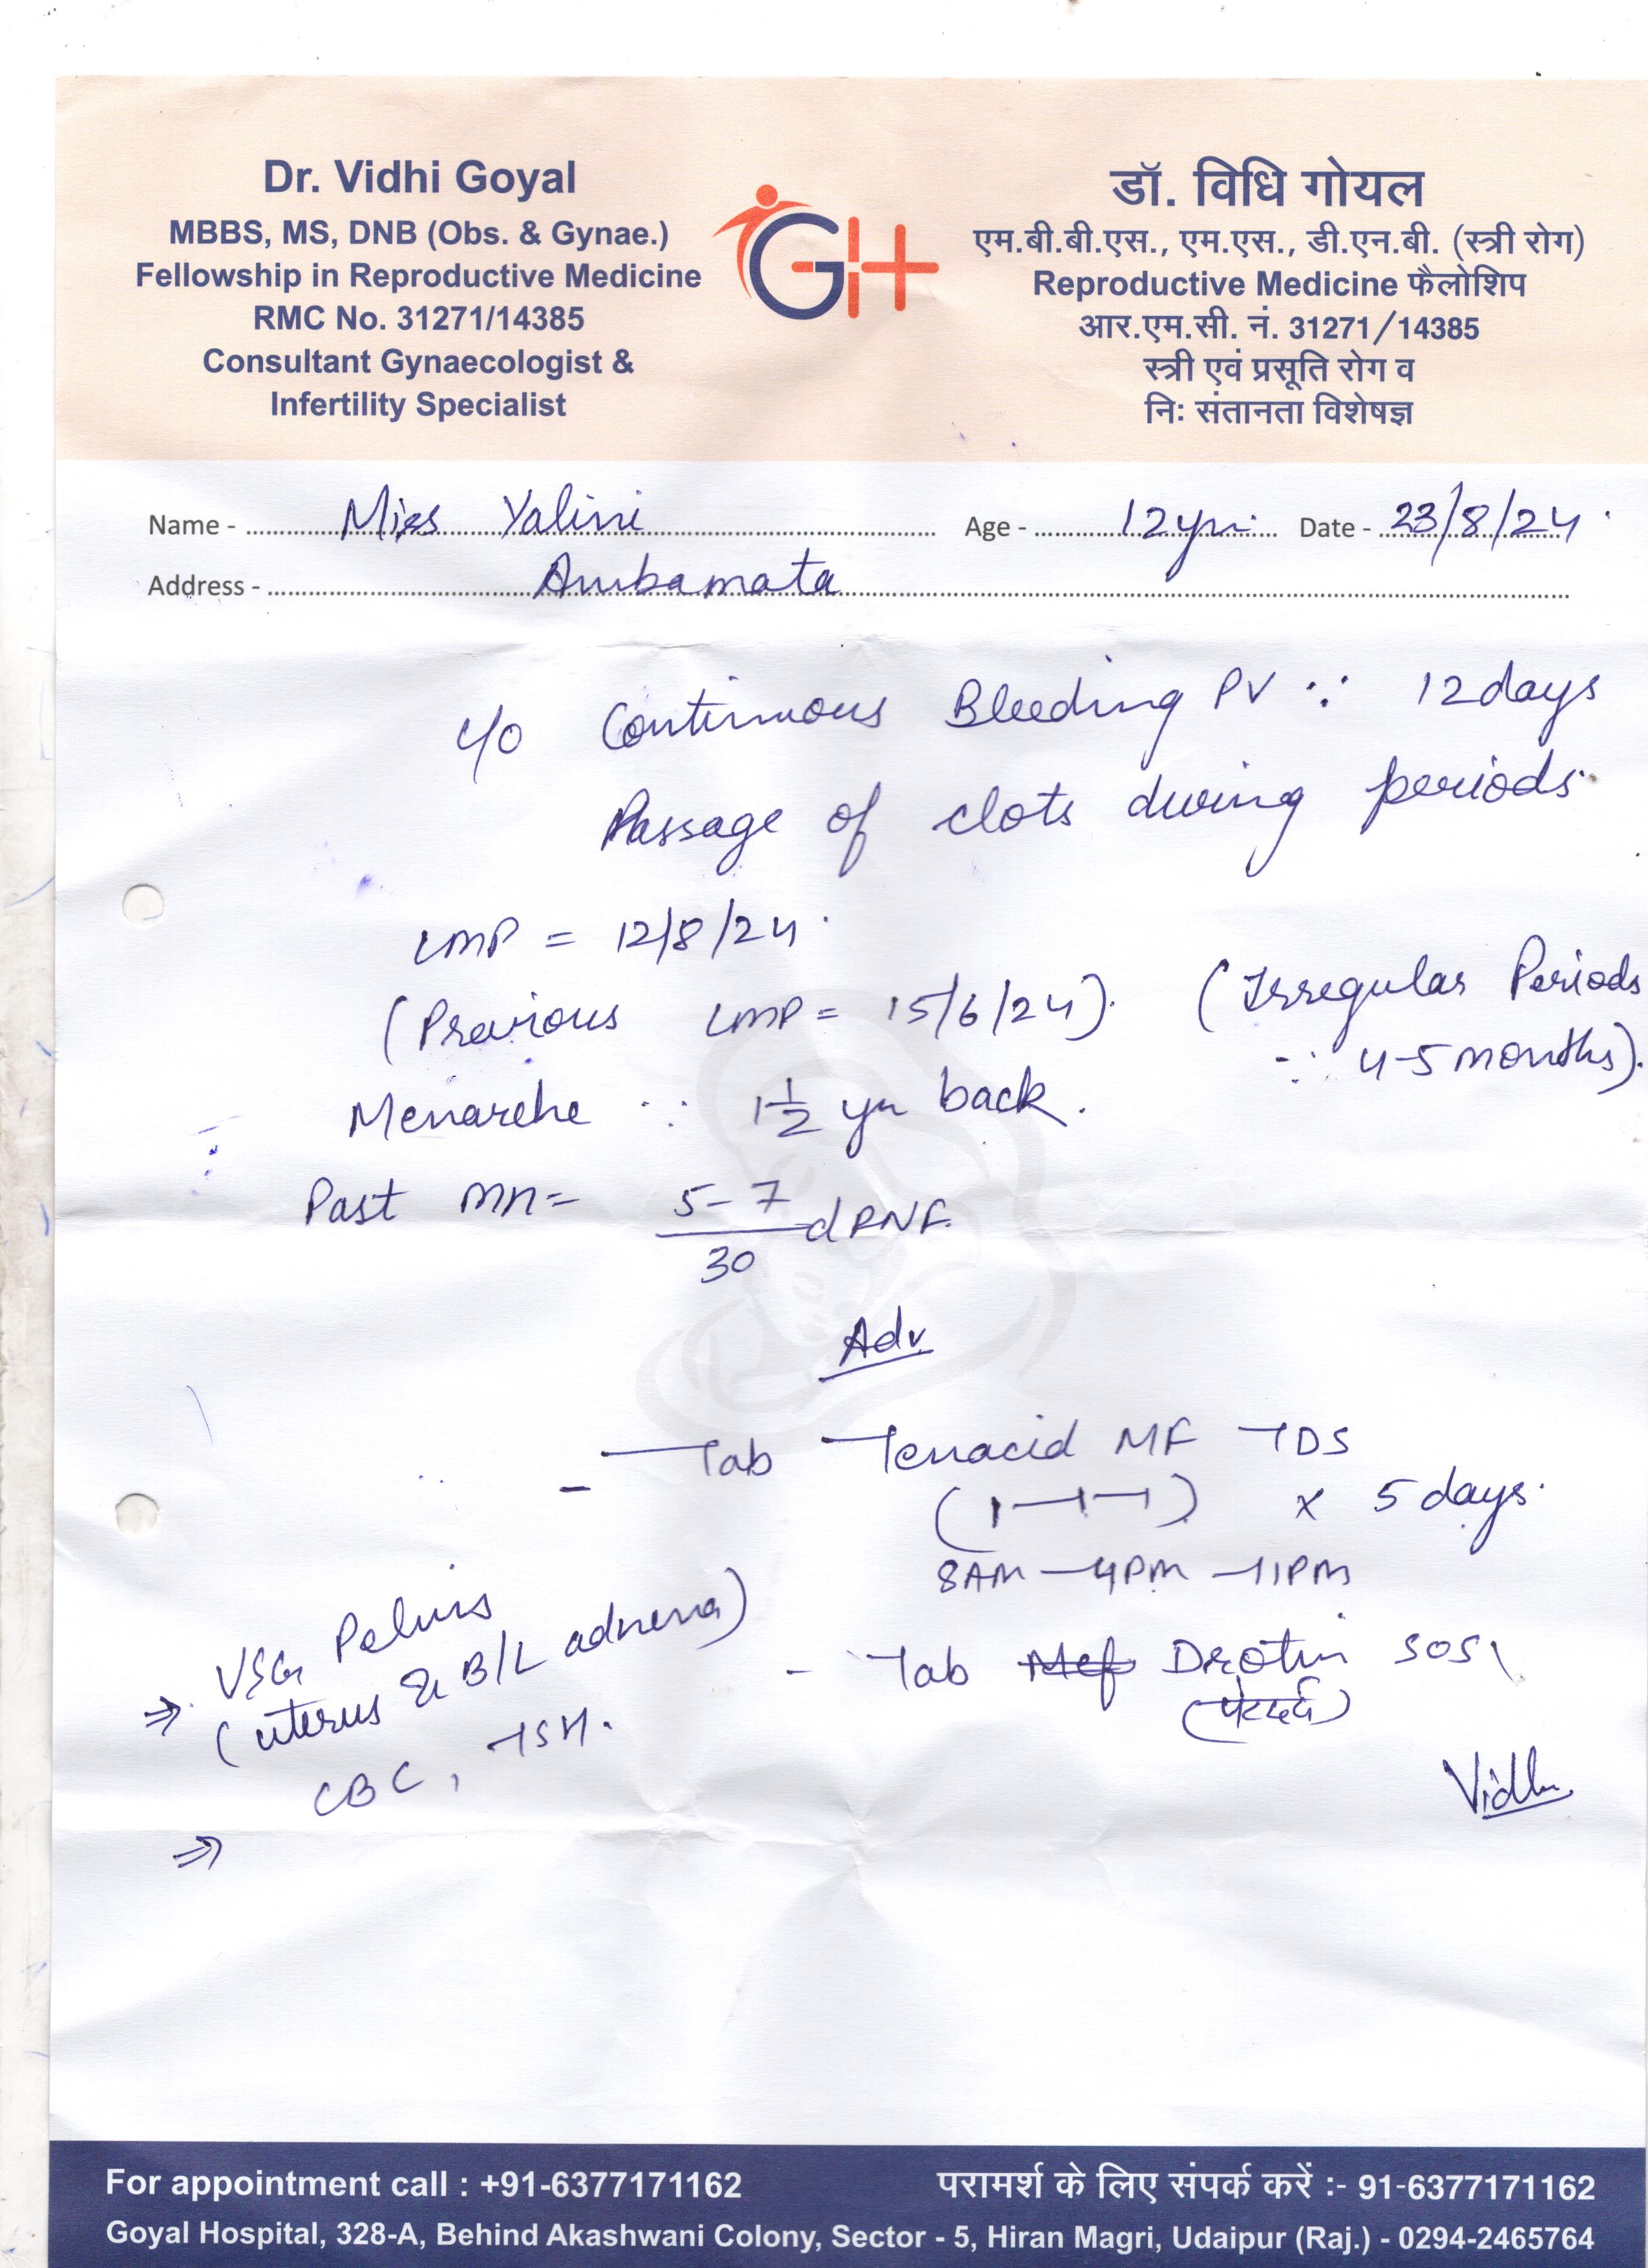 Dr. Vidhi Goyal
MBBS, MS, DNB (Obs. & Gynae.)
Fellowship in Reproductive Medicine
RMC No. 31271/14385
Consultant Gynaecologist &
Infertility Specialist
GH
डॉ. विधि गोयल
एम.बी.बी.एस., एम.एस., डी.एन.बी. (स्त्री रोग)
Reproductive Medicine फैलोशिप
आर.एम.सी. नं. 31271/14385
स्त्री एवं प्रसूति रोग व
निः संतानता विशेषज्ञ
Name - Miss Yalini Age - 12yrs Date - 23/8/24
Address - Ambamata
c/o Continuous Bleeding PV ∵ 12 days
Passage of clots during periods.
LMP = 12/8/24
(Previous LMP = 15/6/24). (Irregular Periods
∵ 4-5 months).
Menarche ∵ 1½ yr back.
Past MH = 5-7/30 d
Adv.
- Tab Tenacid MF TDS
(1-1-1) x 5 days.
8AM - 4PM - 11PM
- Tab Drotin SOS
(पेट दर्द)
⇒ USG Pelvis
(uterus & B/L adnexa)
CBC, TSH.
⇒
Vidhi
For appointment call : +91-6377171162
परामर्श के लिए संपर्क करें :- 91-6377171162
Goyal Hospital, 328-A, Behind Akashwani Colony, Sector - 5, Hiran Magri, Udaipur (Raj.) - 0294-2465764